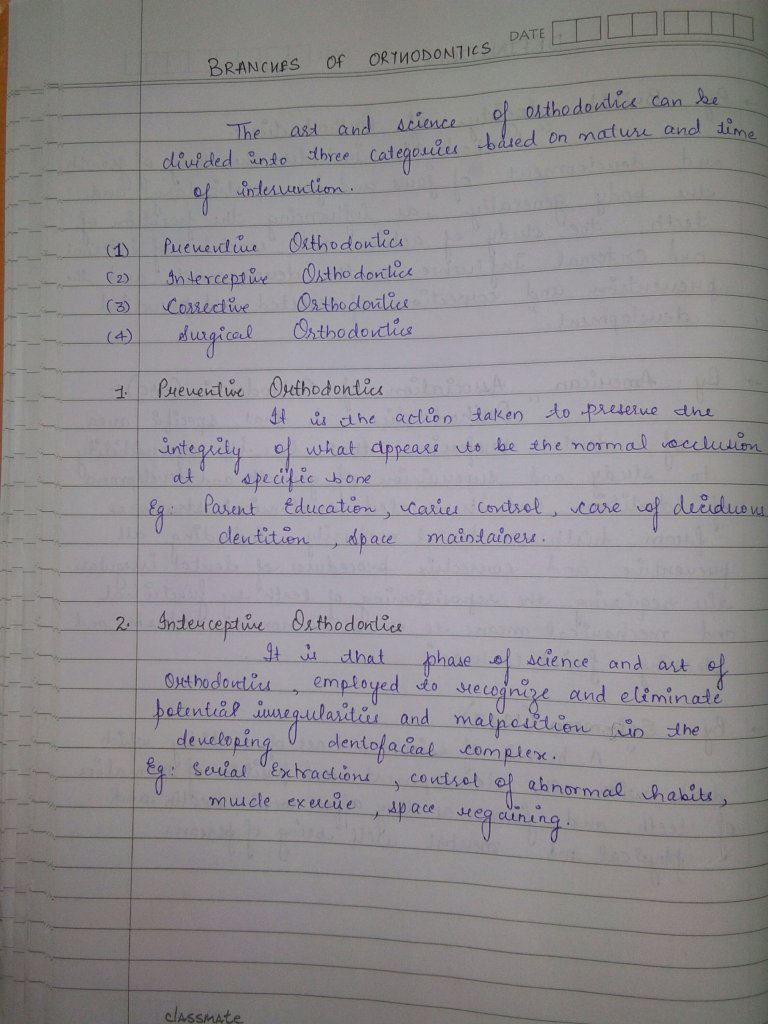 DATE
BRANCHES OF ORTHODONTICS
The art and science of orthodontics can be
divided into three categories based on nature and time
of intervention.
(1) Preventive Orthodontics
(2) Interceptive Orthodontics
(3) Corrective Orthodontics
(4) Surgical Orthodontics
1. Preventive Orthodontics
It is the action taken to preserve the
integrity of what appears to be the normal occlusion
at specific bone
Eg: Parent Education, caries control, care of deciduous
dentition, space maintainers.
2. Interceptive Orthodontics
It is that phase of science and art of
Orthodontics, employed to recognize and eliminate
potential irregularities and malposition in the
developing dentofacial complex.
Eg: Serial Extractions, control of abnormal habits,
muscle exercise, space regaining.
classmate